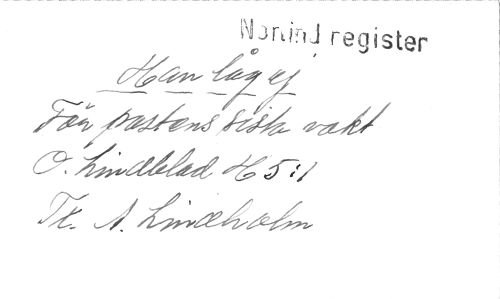 Normind register
Han låg ej
För postens sista vakt
O. Lindblad H 5:1
Tx. A. Lindholm